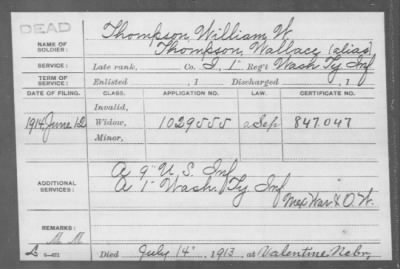 DEAD
Thompson, William W.
NAME OF SOLDIER:
Thompson, Wallace (alias)
SERVICE:
Late rank, Co. I, 1" Reg't Wash Ty Inf
TERM OF SERVICE:
Enlisted , 1 Discharged , 1
DATE OF FILING. CLASS. APPLICATION NO. LAW. CERTIFICATE NO.
Invalid,
1914 June 12 Widow, 1029555 a Sep 847.047
Minor,
ADDITIONAL SERVICES:
A 9" U.S. Inf
A 1" Wash. Ty Inf
Mex War & O.W.
REMARKS:
Died July 14" 1913, at Valentine Nebr